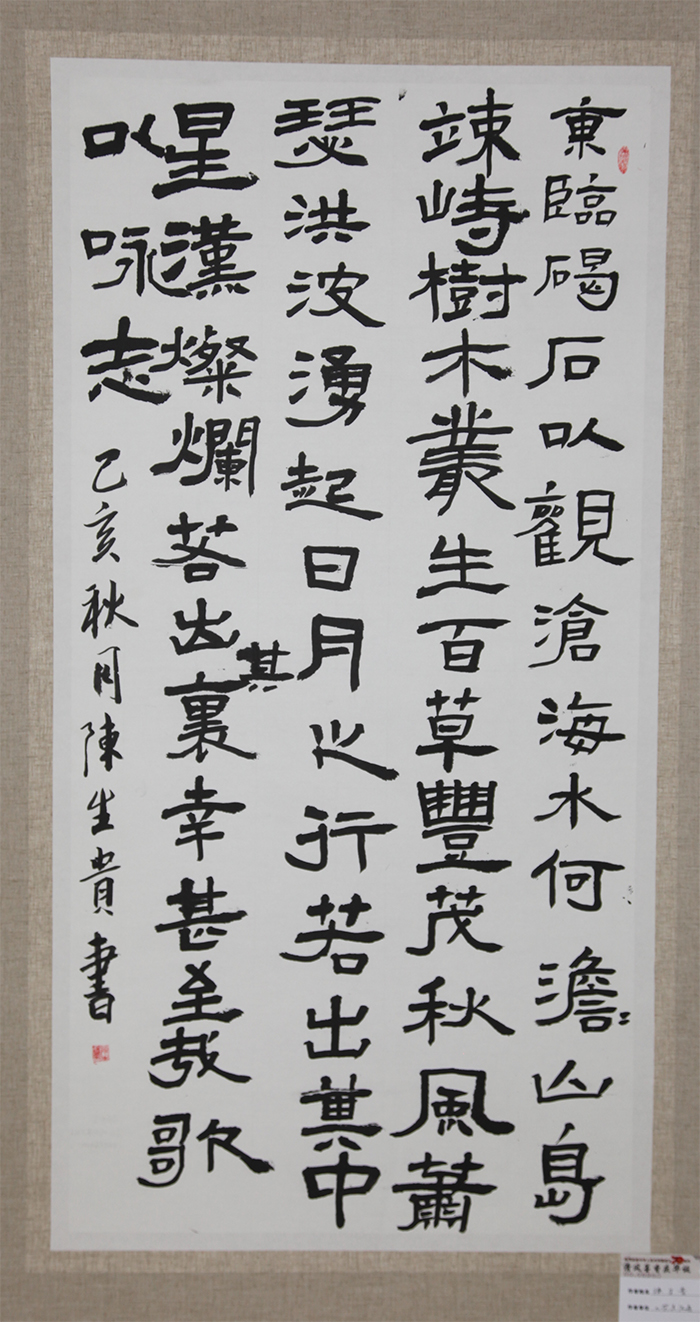 東臨碣石以觀滄海水何澹〻山島
竦峙樹木叢生百草豐茂秋風蕭
瑟洪波湧起日月之行若出其中
星漢燦爛若出其裏幸甚至哉歌
以咏志
己亥秋月陳生貴書